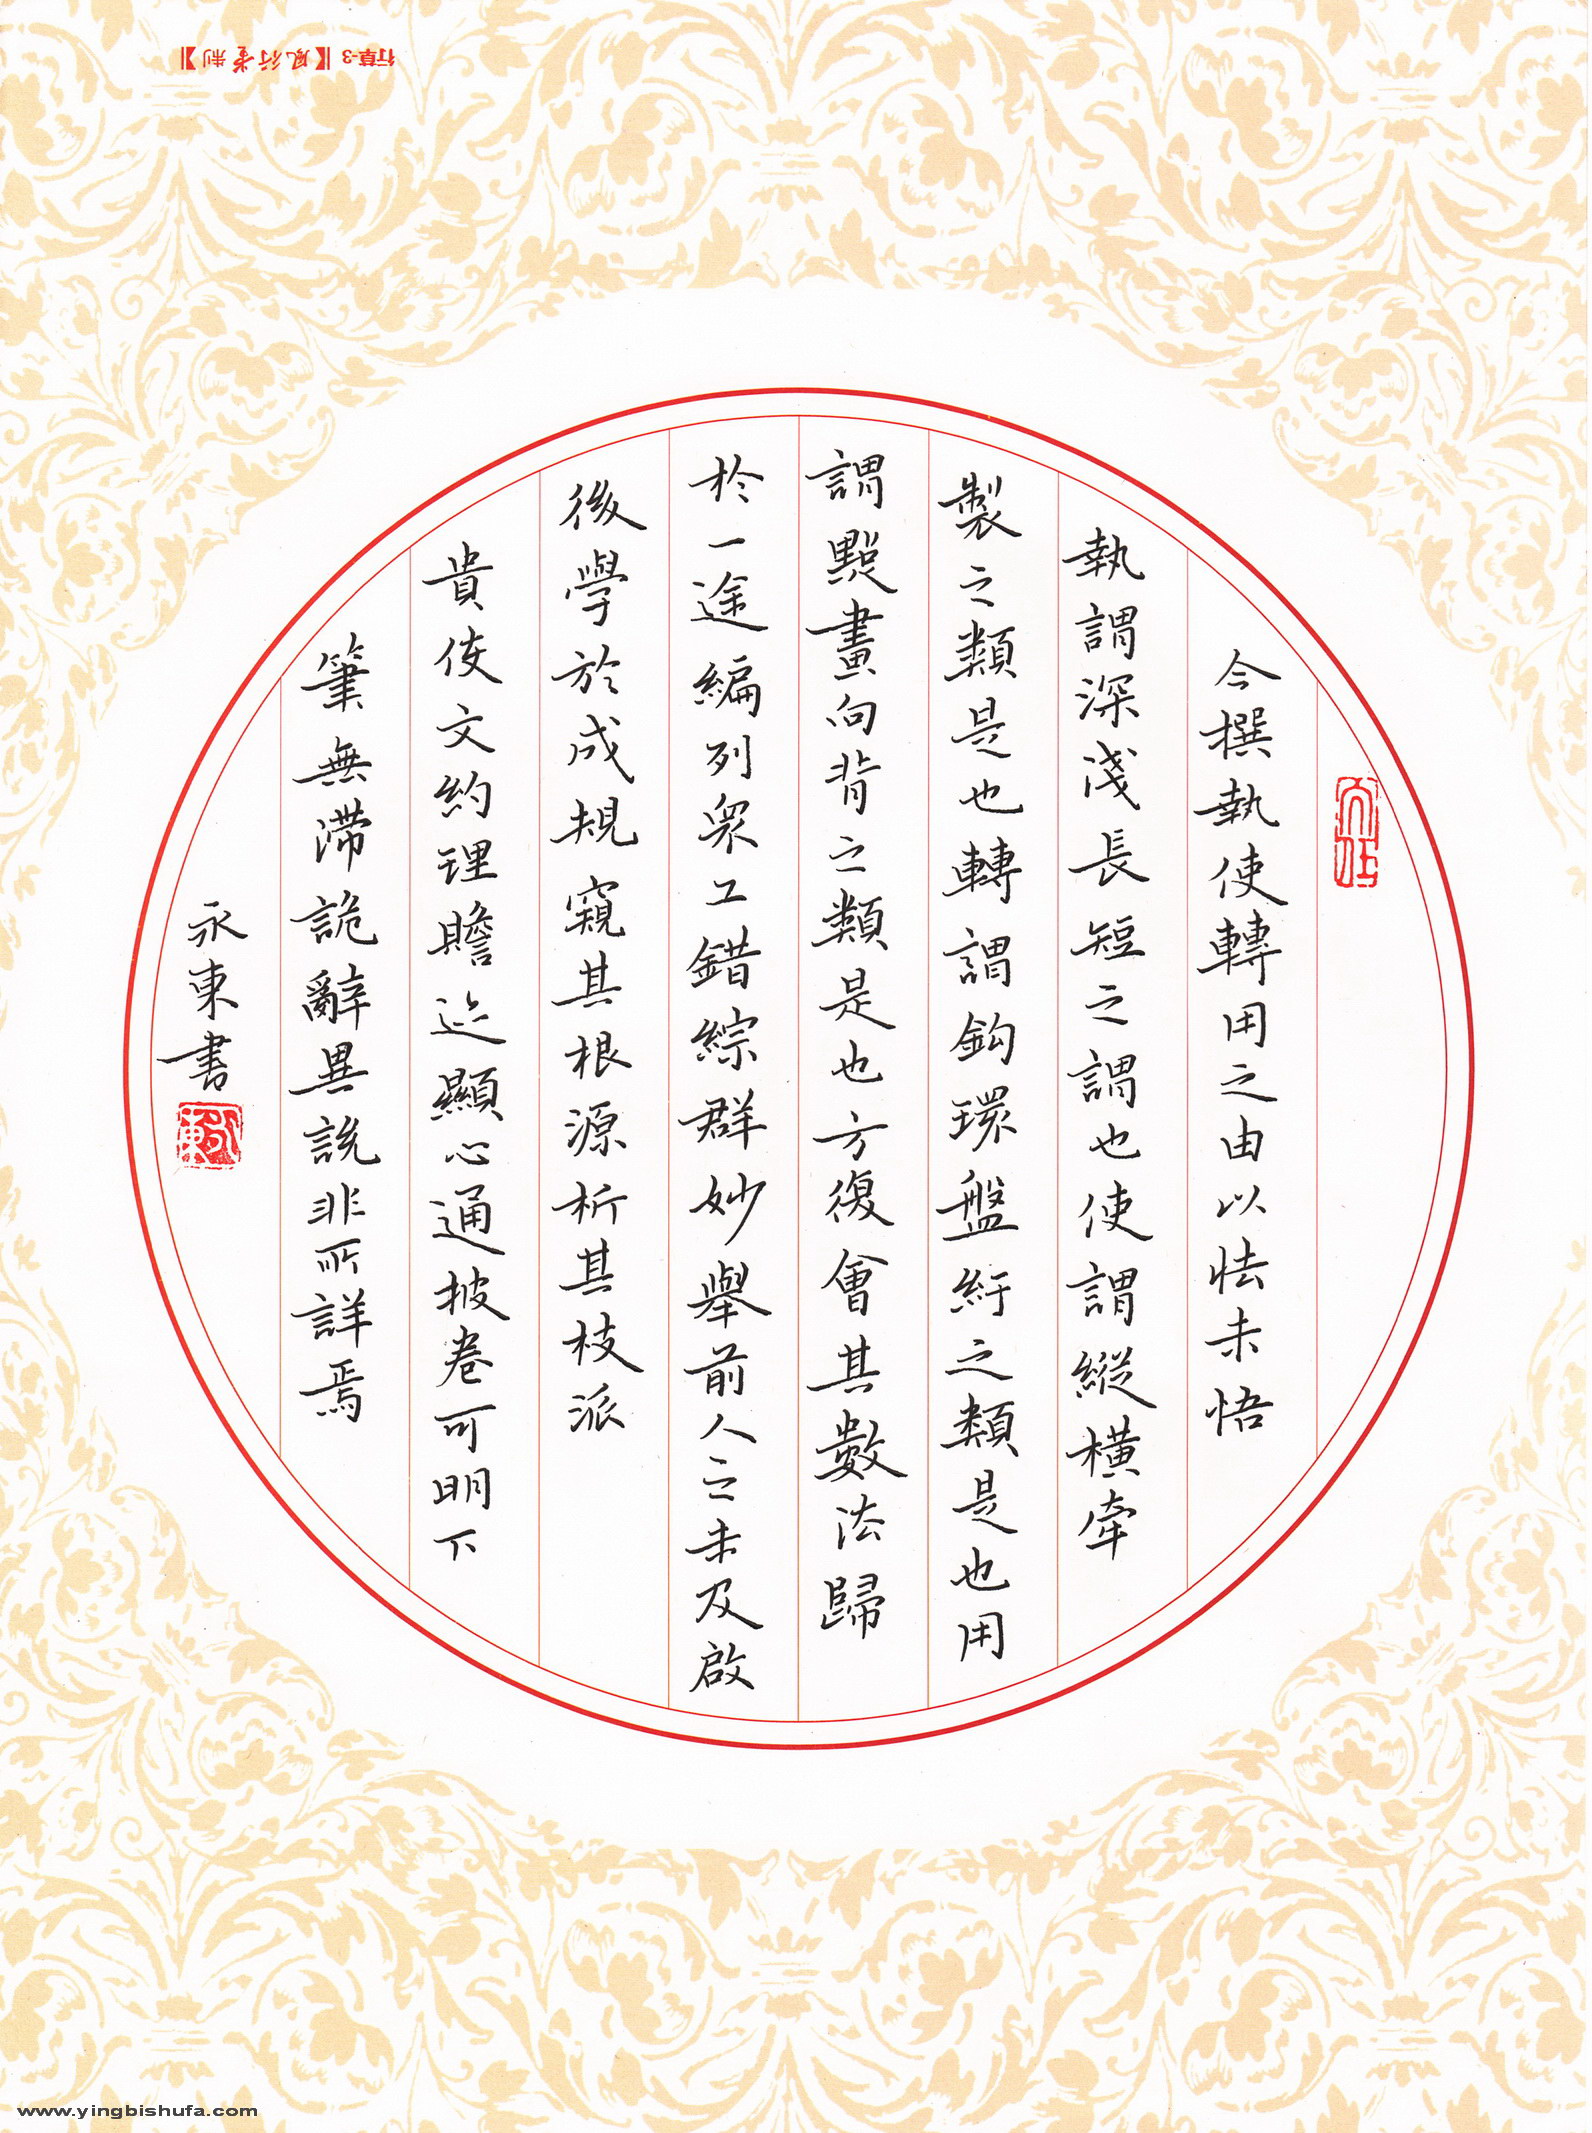 今撰執使轉用之由以怯未悟
執謂深淺長短之謂也使謂縱橫牽
製之類是也轉謂鈎環盤紆之類是也用
謂點畫向背之類是也方復會其數法歸
於一途編列衆工錯綜群妙舉前人之未及啟
後學於成規窺其根源析其枝派
貴使文約理贍迹顯心通披卷可明下
筆無滯詭辭異說非所詳焉
永東書
永東
行草-3【风行者制】
www.yingbishufa.com